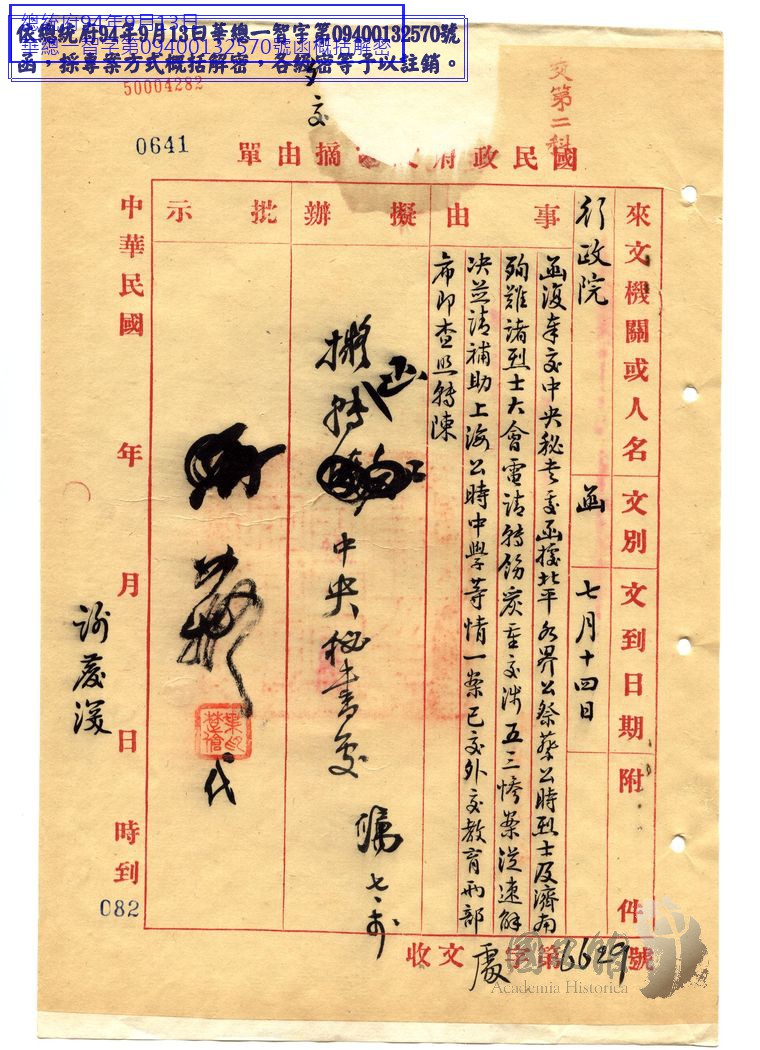 總統府94年9月13日
華總一智字第09400132570號函概括解密
依總統府94年9月13日華總一智字第09400132570號
函，採專案方式概括解密，各級密等予以註銷。
50004282
交第二科
文
0641
國民政府文摘由單
來文機關或人名
行政院
文別
函
文到日期
七月十四日
附件
事由
函復奉交中央秘書處函據北平各界公祭蔡公時烈士及濟南
殉難諸烈士大會電請轉飭嚴重交涉五三慘案從速解
決並請補助上海公時中學等情一案已交外交教育兩部
希即查照轉陳
擬辦
擬轉函
中央秘書處
批示
代
中華民國 年 月 日 時到
082
收文處字第6629號
國史館
Academia Historica